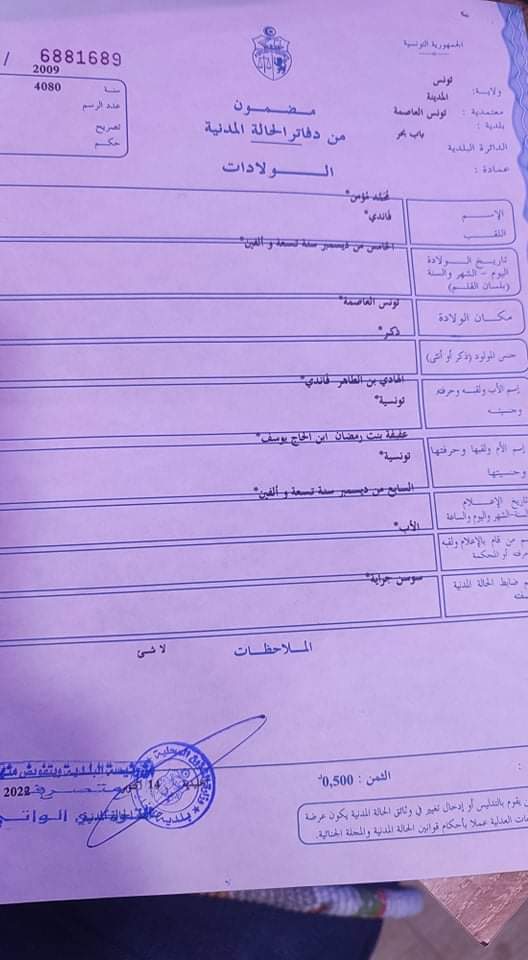 الجمهورية التونسية
6881689 /
ولاية: تونس
معتمدية : المدينة
بلدية : تونس العاصمة
الدائرة البلدية باب بحر
عمادة :
سنة 2009
عدد الرسم 4080
تصريح
حكم
مضمون
من دفاتر الحالة المدنية
الولادات
الإسم محمد مؤمن*
اللقب فاندي*
تاريخ الولادة
اليوم - الشهر والسنة
(بلسان القلم)
الخامس من ديسمبر سنة تسعة و ألفين*
مكان الولادة تونس العاصمة*
جنس المولود (ذكر أو أنثى) ذكر*
إسم الأب ولقبه وحرفته الهادي بن الطاهر فاندي*
وجنسيته تونسية*
إسم الأم ولقبها وحرفتها عفيفة بنت رمضان ابن الحاج يوسف*
وجنسيتها تونسية*
تاريخ الإعلام
السنة-الشهر واليوم والساعة
السابع من ديسمبر سنة تسعة و ألفين*
من قام بالإعلام ولقبه
حرفته أو المحكمة
الأب*
ضابط الحالة المدنية
سوسن جراية*
الملاحظات لا شئ
الثمن : 0,500د
14 أكتوبر 2022
يقوم بالتدليس أو إدخال تغيير في وثائق الحالة المدنية يكون عرضة
العدلية عملا بأحكام قوانين الحالة المدنية والمجلة الجنائية.